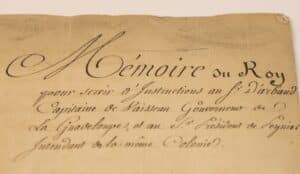 Mémoire du Roy
pour servir d'Instructions au Sr. D'arbaud
Capitaine de Vaisseau Gouverneur de
La Guadeloupe, et au Sr. Président de Peynier
Intendant de la même Colonie.